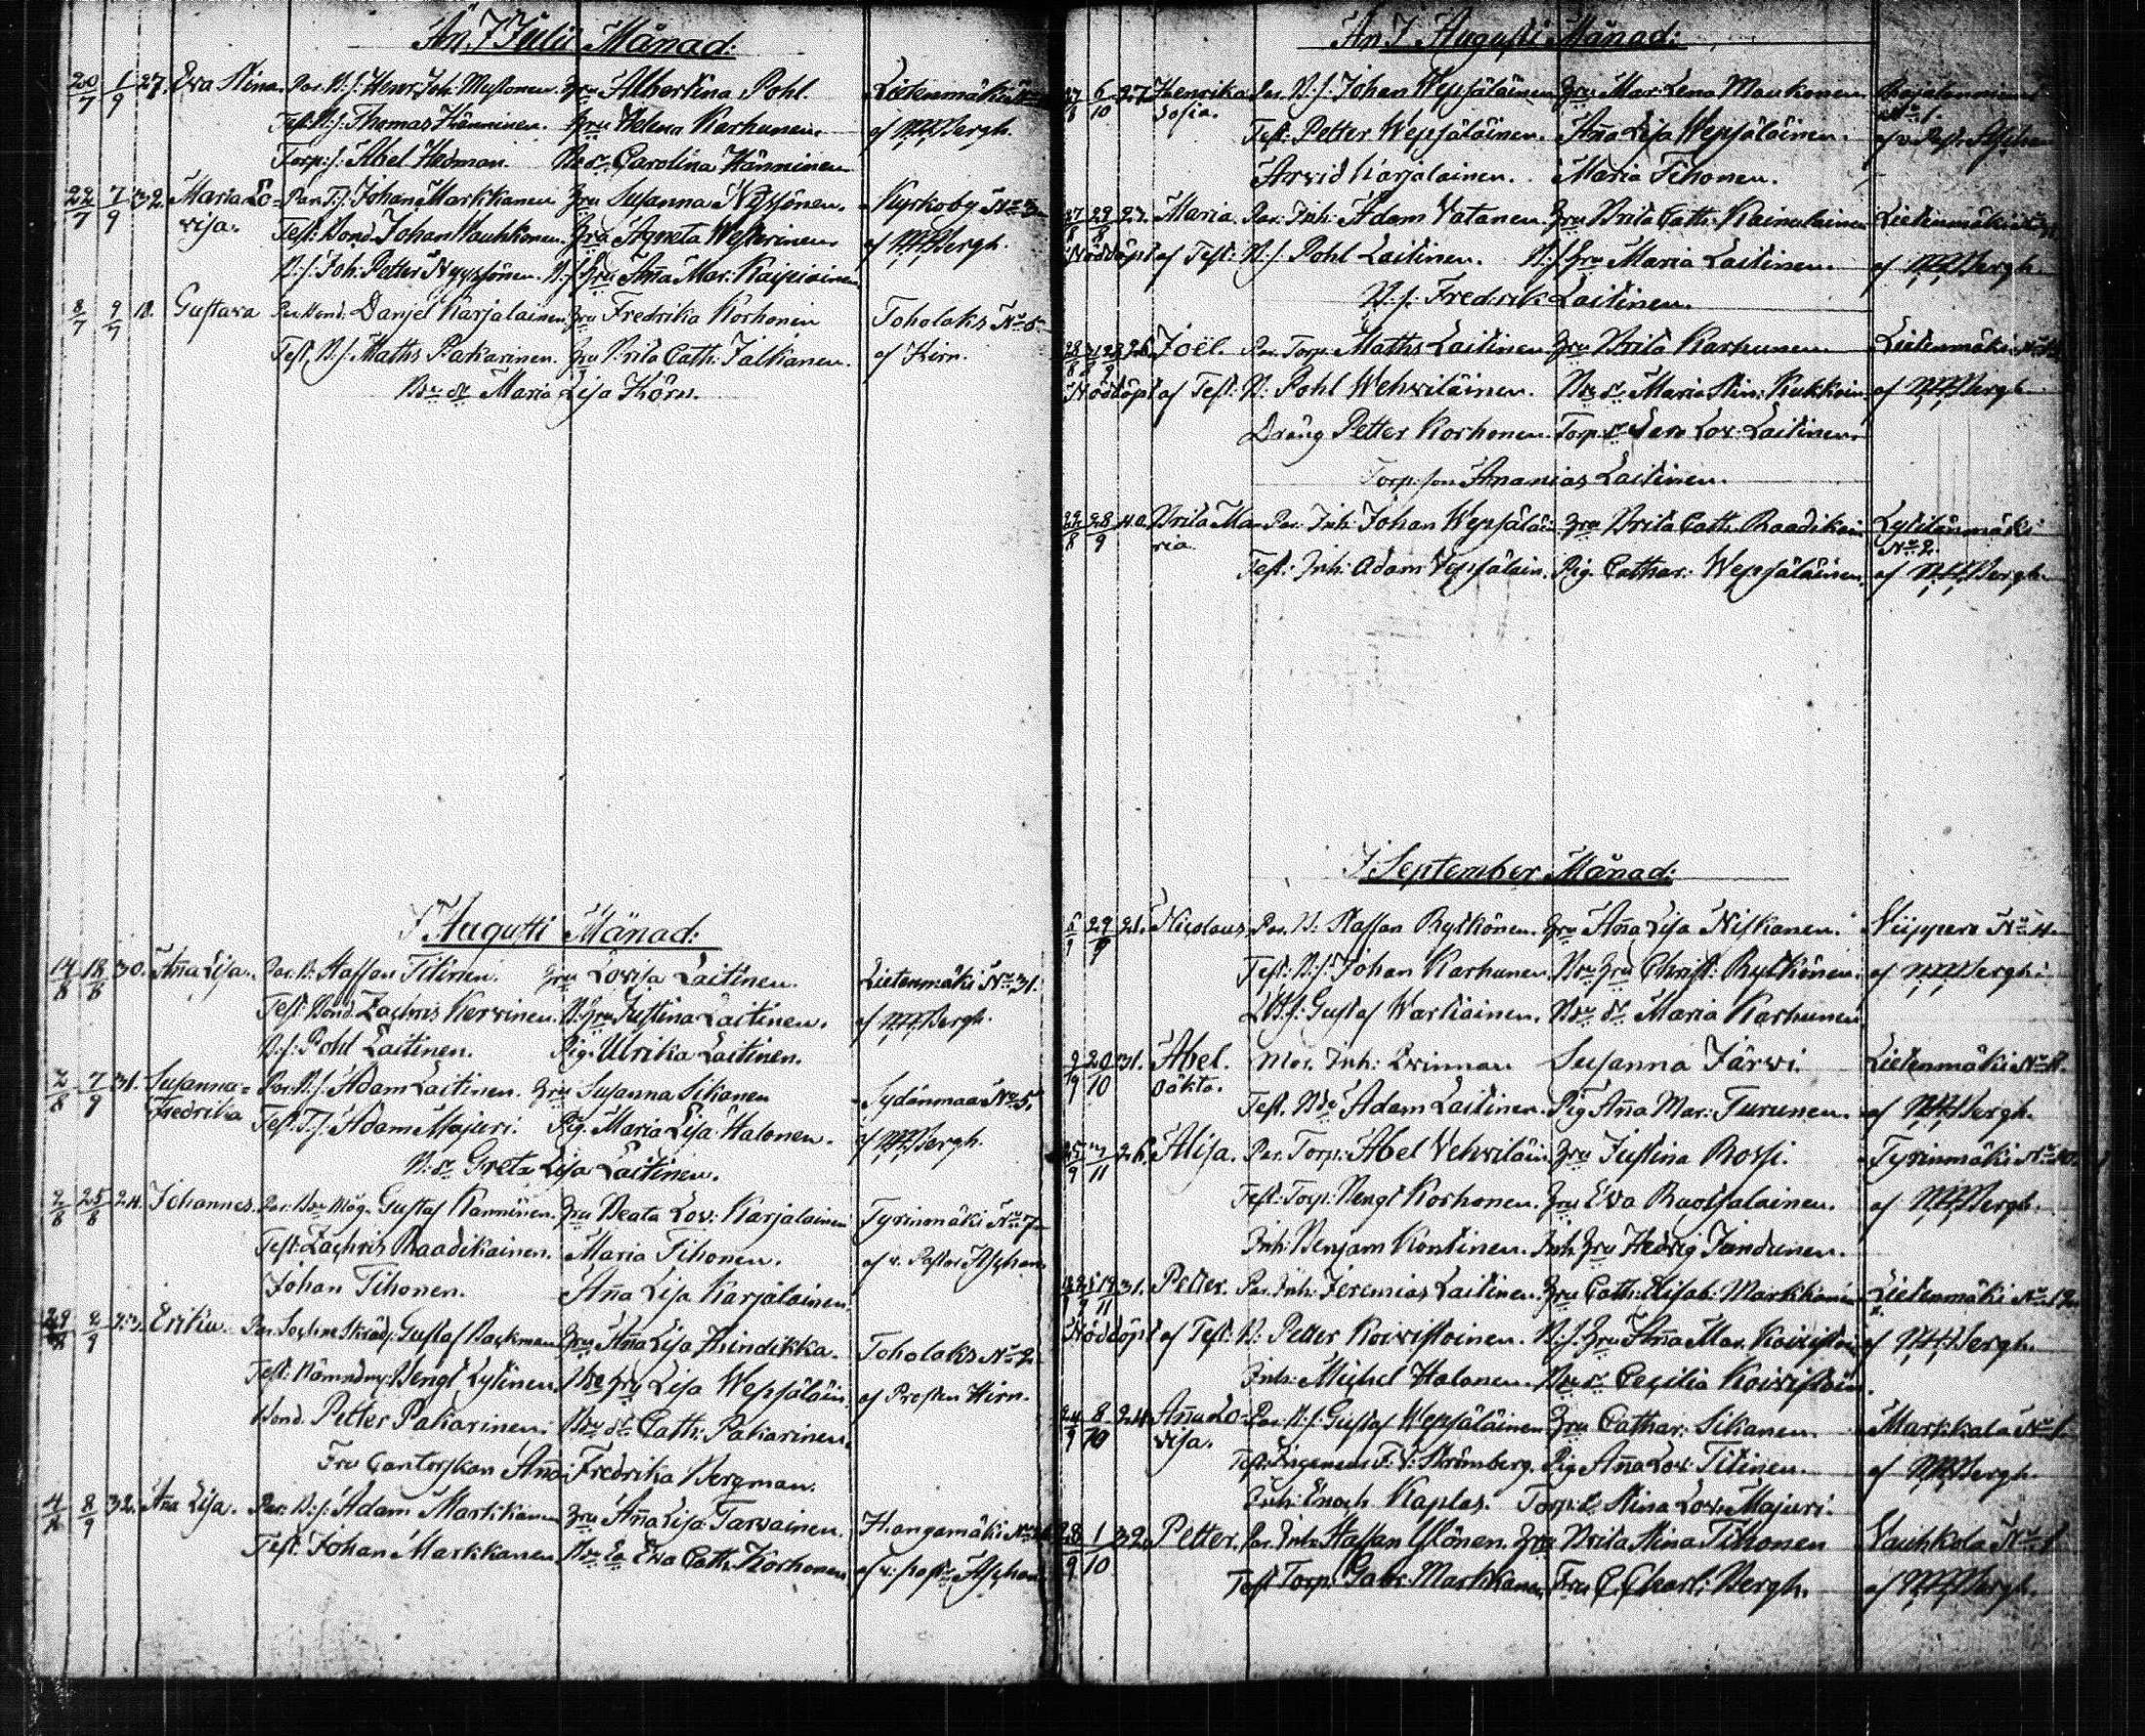 Än I Julii Månad:
20/7 1/9 27. Eva Stina. Par. B.S. Henr. Joh. Mustonen. Hru Albertina Pohl. Lietenmäki
Test. B.S. Thomas Hänninen. Hru Helena Karhunen. af Bergh.
Torp. S. Abel Hedman. Carolina Hänninen
22/7 7/9 32. Maria Lo= Par. T.S. Johan Markkanen Hru Susanna Nyyssönen. Kyrkoby No 3
visa. Test. Bond. Johan Wauhkonen. Hru Agneta Westerinen af Bergh.
B.S. Joh. Petter Nyyssönen. B.S. Hru Aña Mar. Kaipiainen
8/7 9/7 18. Gustava Par. Bond. Danjel Karjalainen Hru Fredrika Korhonen Toholaks No 5
Test. B.S. Maths Pakarinen. Hru Brita Cath. Jalkanen. af Hirn.
Maria Lisa Hörn.
I Augusti Månad:
14/8 18/8 30. Aña Lisa. Par. B. Staffan Titinen. Hru Lovisa Laitinen. Lietenmäki No 31.
Test. Bond. Zachris Kervinen. B. Hru Justina Laitinen. af Bergh.
B.S. Pohl Laitinen. Pig. Ulrika Laitinen.
2/8 7/9 31. Susanna= Par. B.S. Adam Laitinen. Hru Susanna Sikanen Sydänmaa No 5
Fredrika Test. T.S. Adam Majuri. Pig. Maria Lisa Halonen. af Bergh.
B. dr Greta Lisa Laitinen.
2/8 25/8 24. Johannes. Par. Gustaf Hänninen. Hru Beata Lov. Karjalainen Tyrinmäki No 7
Test. Zachris Raadikainen. Maria Tihonen. af v. Pastor Aschan
Johan Tihonen. Aña Lisa Karjalainen.
29/8 2/9 33. Erik Par. Sockne Skräd. Gustaf Backman Hru Aña Lisa Hindikka. Toholaks No 2
Test. Nämndm. Bengt Lytinen. Hru Lisa Wepsäläin. af Prosten Hirn.
Bond. Petter Pakarinen. dr Cath. Pakarinen.
Fru Cantorskan Aña Fredrika Bergman.
4/8 8/9 32. Aña Lisa. Par. B.S. Adam Markkanen Hru Aña Lisa Tarvainen. Hangamäki
Test. Johan Markkanen. Eva Cath. Korhonen af v. Past. Aschan
Än I Augusti Månad:
27/8 6/10 27. Henrika Par. B.S. Johan Wepsäläinen Hru Mar. Lena Maukonen
Sofia. Test. Petter Wepsäläinen. Aña Lisa Wepsäläinen. af v. Past. Aschan
Arvid Karjalainen. Maria Tihonen.
27/8 29/8 27. Maria Par. Inh. Adam Vatanen. Hru Brita Cath. Kainulainen Lietenmäki
Nöddöpt af Test. B.S. Pohl Laitinen. B.S. Hru Maria Laitinen. af Bergh.
B.S. Fredrik Laitinen.
26. Joel. Par. Torp. Maths Laitinen Hru Brita Karhunen Lietenmäki
Nöddöpt af Test. B. Pohl Wehviläinen. dr Maria Stin. Kukkoin af Bergh.
Dräng Petter Korhonen. Torp. dr Sara Lov. Laitinen.
Torp. son Ananias Laitinen.
22/8 28/9 40. Brita Ma= Par. Inh. Johan Wepsäläin Hru Brita Cath. Raadikain Lytilänmäki
ria No 2.
Test. Inh. Adam Vepsäläin. Pig. Cathar. Wepsäläinen. af Bergh.
I September Månad:
6/9 29/9 21. Nicolaus, Par. B. Staffan Rytkönen. Hru Aña Lisa Niskanen. Niippera No 4
Test. B.S. Johan Karhunen. Hru Christ. Rytkönen. af Bergh.
Gustaf Wartiainen. dr Maria Karhunen
9/9 20/10 31. Abel. Mor. Inh. Qvinnan Susanna Järvi. Lietenmäki
oäkta. Test. Adam Laitinen. Pig. Aña Mar. Turunen. af Bergh.
25/9 /11 26. Alisa. Par. Torp. Abel Vehviläin Hru Justina Rossi. Tyrinmäki
Test. Torp. Bengt Korhonen. Hru Eva Raatsalainen. af Bergh.
Inh. Benjam Kontinen. Inh. Hru Hedvig Jandunen.
31. Petter. Par. Inh. Jeremias Laitinen. Hru Cath. Elisab. Markkanen Lietenmäki No 12
Nöddöpt af Test. B. Petter Koivistoinen. B.S. Hru Aña Mar. Koivistoin af Bergh.
Inh. Michel Halonen. dr Cecilia Koivistoin.
24/9 8/10 24. Aña Lo= Par. B.S. Gustaf Wepsäläinen Hru Cathar. Sikanen. Markkala No 1
visa. Test. Strömberg. Pig. Aña Lov. Titinen. af Bergh.
Inh. Enoch Kaplas. Torp. dr Stina Lov. Majuri.
28/9 1/10 32. Petter. Par. Inh. Staffan Ylönen. Hru Brita Stina Tihonen Vauhkola No 1
Test. Torp. Gabr. Markkanen. Fru C. Charl. Bergh. af Bergh.